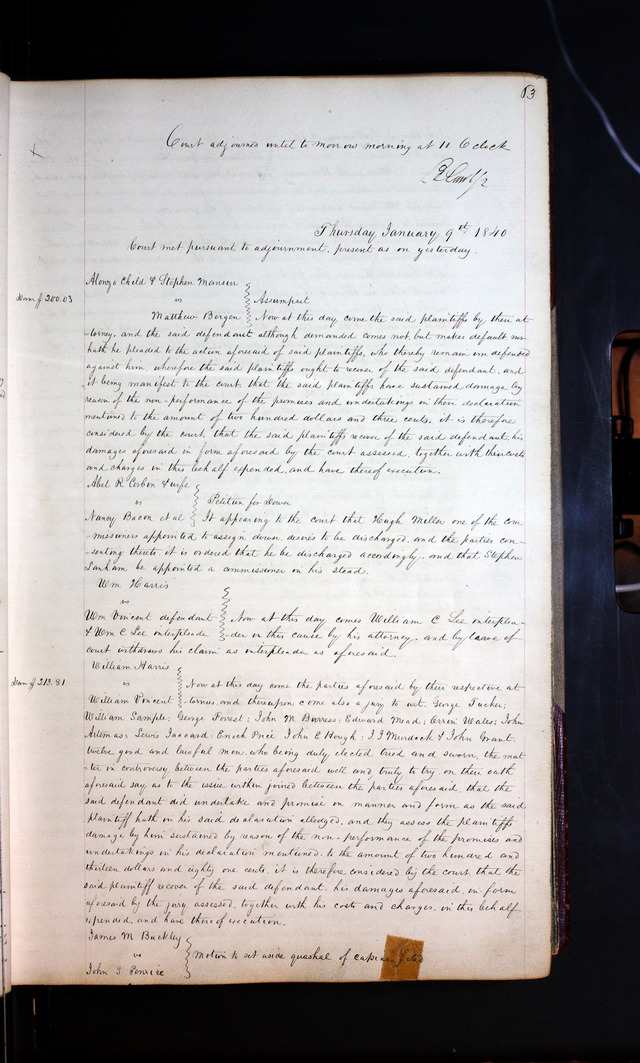 63
Court adjourned until to morrow morning at 11 O'clock
Thursday January 9th 1840
Court met pursuant to adjournment. present as on yesterday.
Alonzo Child & Stephen Mansur
Dam $200.03
vs
Assumpsit
Matthew Bergen
Now at this day come the said plaintiffs by their at-
-torney, and the said defendant although demanded comes not, but makes default nor
hath he pleaded to the action aforesaid of said plaintiffs, who thereby remain undefended
against him, wherefore the said plaintiffs ought to recover of the said defendant, and
it being manifest to the court that the said plaintiffs have sustained damage by
reason of the non-performance of the promises and undertakings in their declaration
mentioned to the amount of two hundred dollars and three cents, it is therefore
considered by the court, that the said plaintiffs recover of the said defendant, his
damages aforesaid in form aforesaid by the court assessed, together with their costs
and charges in this behalf expended, and have thereof execution.
Abel R Corbin & wife
vs
Petition for Dower
Nancy Bacon et al
It appearing to the court that Hugh Miller one of the com-
-missioners appointed to assign dower, desires to be discharged, and the parties con-
-senting thereto it is ordered that he be discharged accordingly, and that Stephen
Lanham be appointed a commissioner in his stead.
Wm Harris
vs
Wm Vincent defendant
& Wm C Lee interpleader
Now at this day comes William C Lee interplea-
-der in this cause by his attorney, and by leave of
court withdraws his claim as interpleader as aforesaid.
William Harris
Dam $213.81
vs
William Vincent
Now at this day come the parties aforesaid by their respective at-
-tornies, and thereupon come also a jury to wit, George Tucker;
William Sample; George Forest; John M Burress; Edward Mead; Orrin Wales; John
Artemas; Lewis Jaccard; Enoch Price John E Hough; I I Murdock & John Grant.
twelve good and lawful men, who being duly elected tried and sworn, the mat-
-ter in controversy between the parties aforesaid well and truly to try, on their oath
aforesaid say, as to the issue within joined between the parties aforesaid, that the
said defendant did undertake and promise in manner and form as the said
plaintiff hath in his said declaration alledged, and they assess the plaintiffs
damage by him sustained by reason of the non-performance of the promises and
undertakings in his declaration mentioned, to the amount of two hundred and
thirteen dollars and eighty one cents, it is therefore considered by the court, that the
said plaintiff recover of the said defendant, his damages aforesaid, in form
aforesaid by the jury assessed, together with his costs and charges, in this behalf
expended, and have thereof execution.
James M Buckley
vs
Motion to set aside quashal of capias
John S